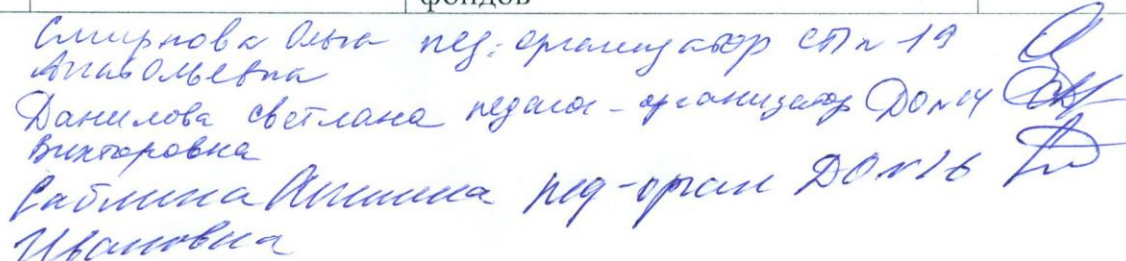 фондов
Смирнова Ольга пед. организатор СП № 19
Анатольевна
Данилова Светлана педагог-организатор ДО № 14
Викторовна
Саблина пед-орган ДО № 16
Ивановна